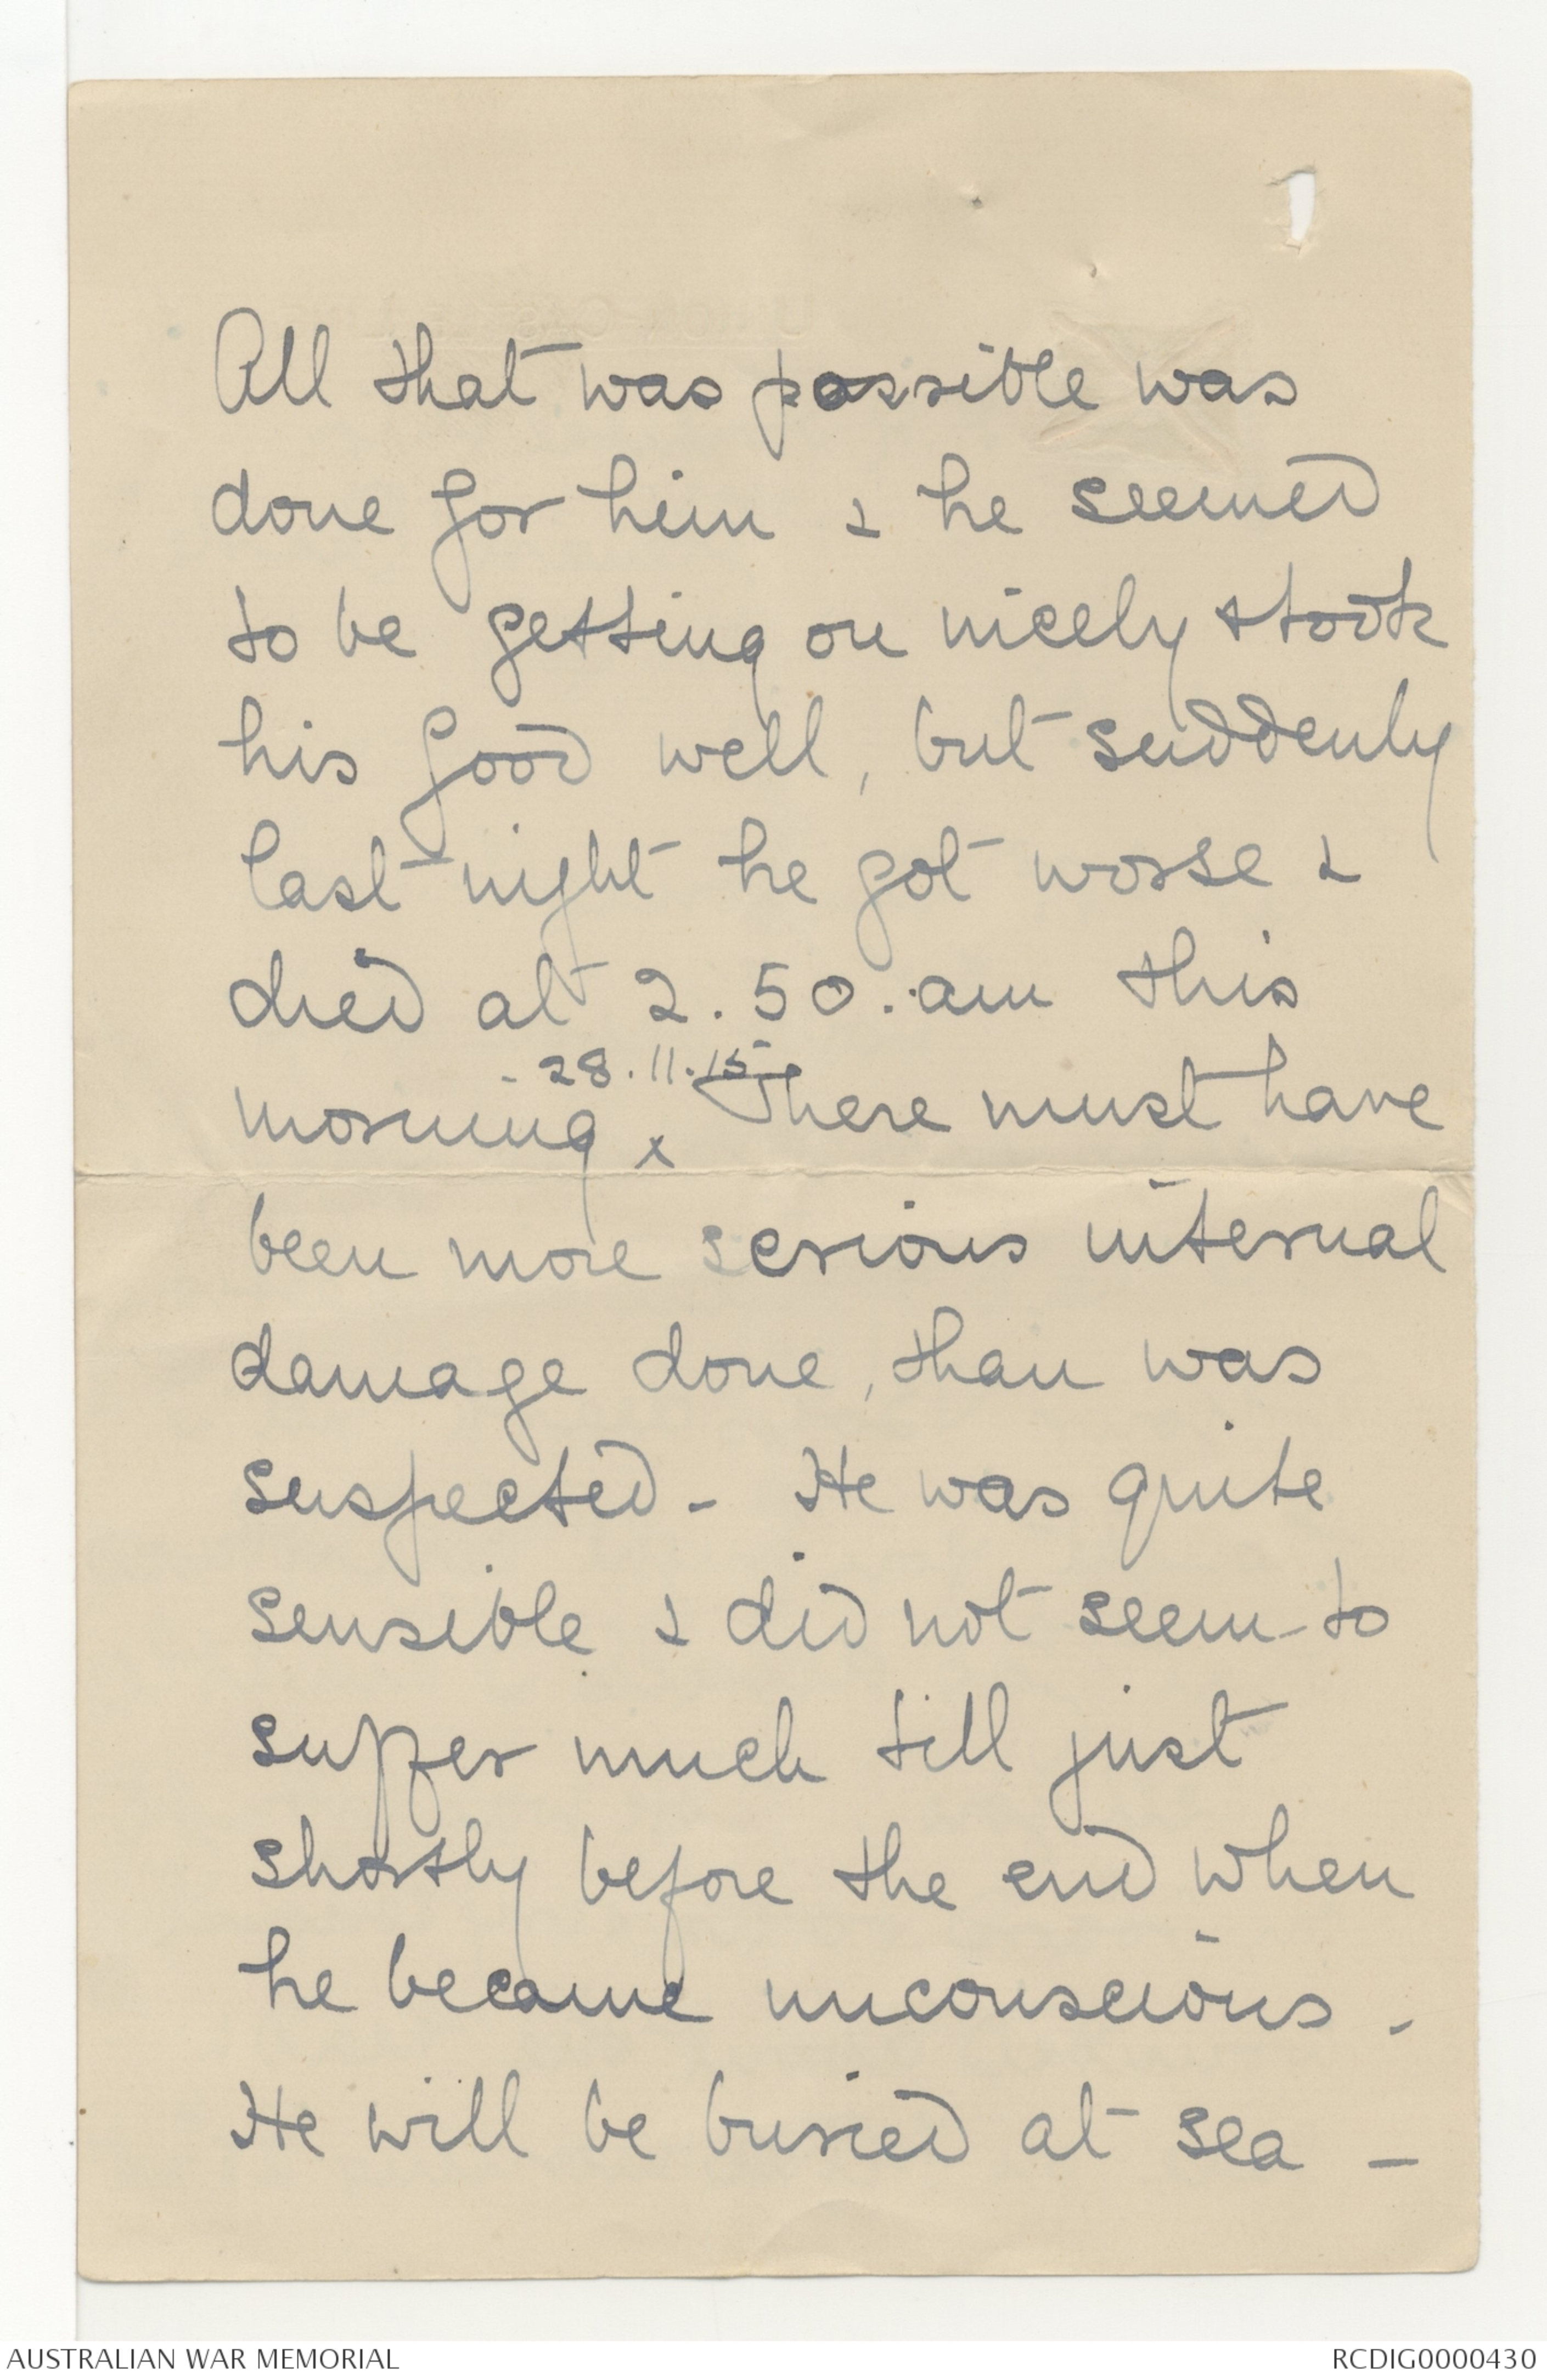 All that was possible was
done for him & he seemed
to be getting on nicely & took
his food well, but suddenly
last night he got worse &
died at 2.50. am this
- 28.11.15
morning x There must have
been more serious internal
damage done, than was
suspected - He was quite
sensible & did not seem to
suffer much till just
shortly before the end when
he became unconscious -
He will be buried at sea -
AUSTRALIAN WAR MEMORIAL
RCDIG0000430